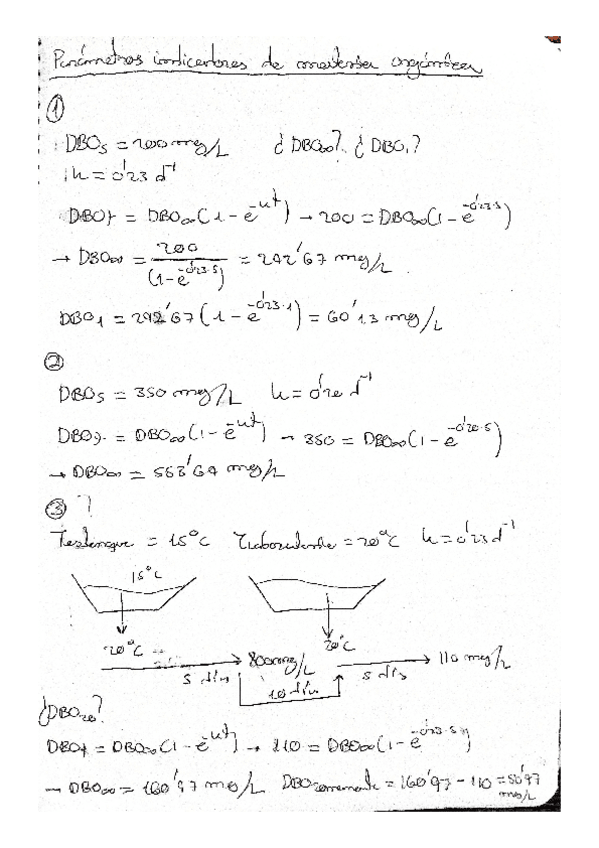 Parámetros indicadores de materia orgánica
①
DBO₅ = 200 mg/L ¿DBO∞? ¿DBO₁?
k = 0'23 d⁻¹
DBOt = DBO∞(1 - e^-kt) → 200 = DBO∞(1 - e^-0'23·5)
→ DBO∞ = 200 / (1 - e^-0'23·5) = 292'67 mg/L
DBO₁ = 292'67 (1 - e^-0'23·1) = 60'13 mg/L
②
DBO₅ = 350 mg/L k = 0'20 d⁻¹
DBOt = DBO∞(1 - e^-kt) → 350 = DBO∞(1 - e^-0'20·5)
→ DBO∞ = 553'69 mg/L
③ ?
Testanque = 15°C = 20°C k = 0'23 d⁻¹
15°C
20°C 20°C
5 días 800mg/L 10 días 5 días 110 mg/L
¿DBO₂₀?
DBOt = DBO∞(1 - e^-kt) → 110 = DBO∞(1 - e^-0'23·5)
→ DBO∞ = 160'97 mg/L DBOremanente = 160'97 - 110 = 50'97 mg/L